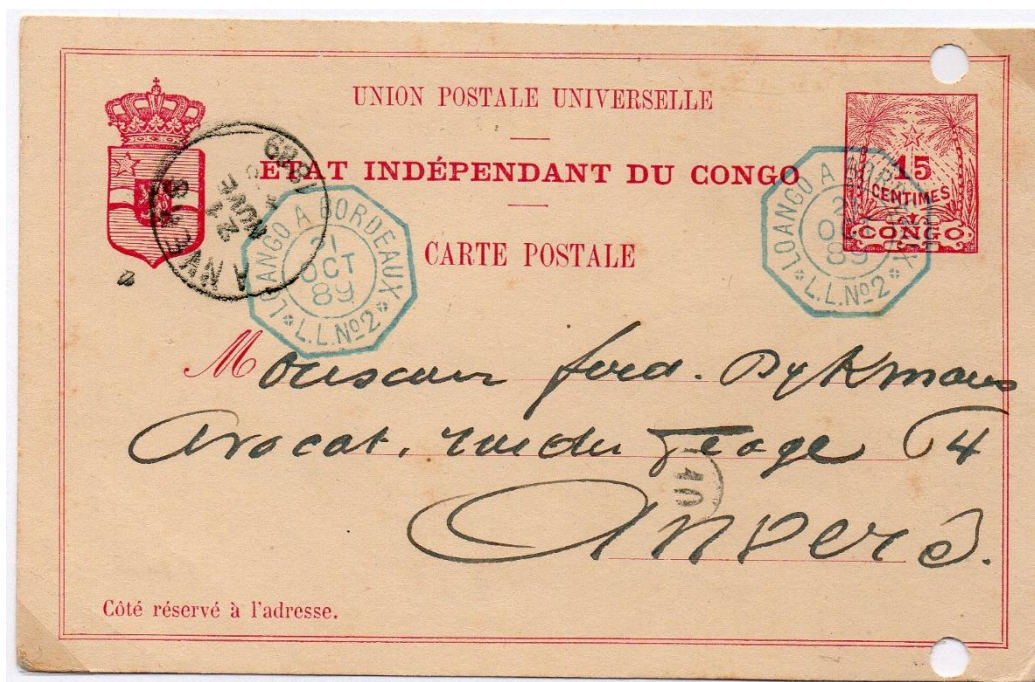 UNION POSTALE UNIVERSELLE
ÉTAT INDÉPENDANT DU CONGO
CARTE POSTALE
15
CENTIMES
CONGO
ANVERS
21
NOVE
1889
LOANGO A BORDEAUX
21
OCT
89
L.L.Nº2
LOANGO A BORDEAUX
21
OCT
89
L.L.Nº2
Monsieur ferd. Dykmans
Avocat, rue du 74
40
Anvers.
Côté réservé à l'adresse.